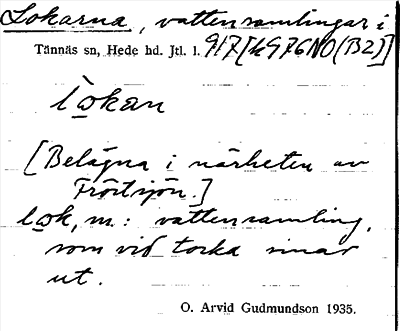 Lokarna, vattensamlingar i
Tännäs sn, Hede hd. Jtl. l. 917 [4976NO(B2)]
lo̱kan
[Belägna i närheten av
Fröstsjön.]
lo̱k, m.: vattensamling,
som vid torka sinar
ut.
O. Arvid Gudmundson 1935.